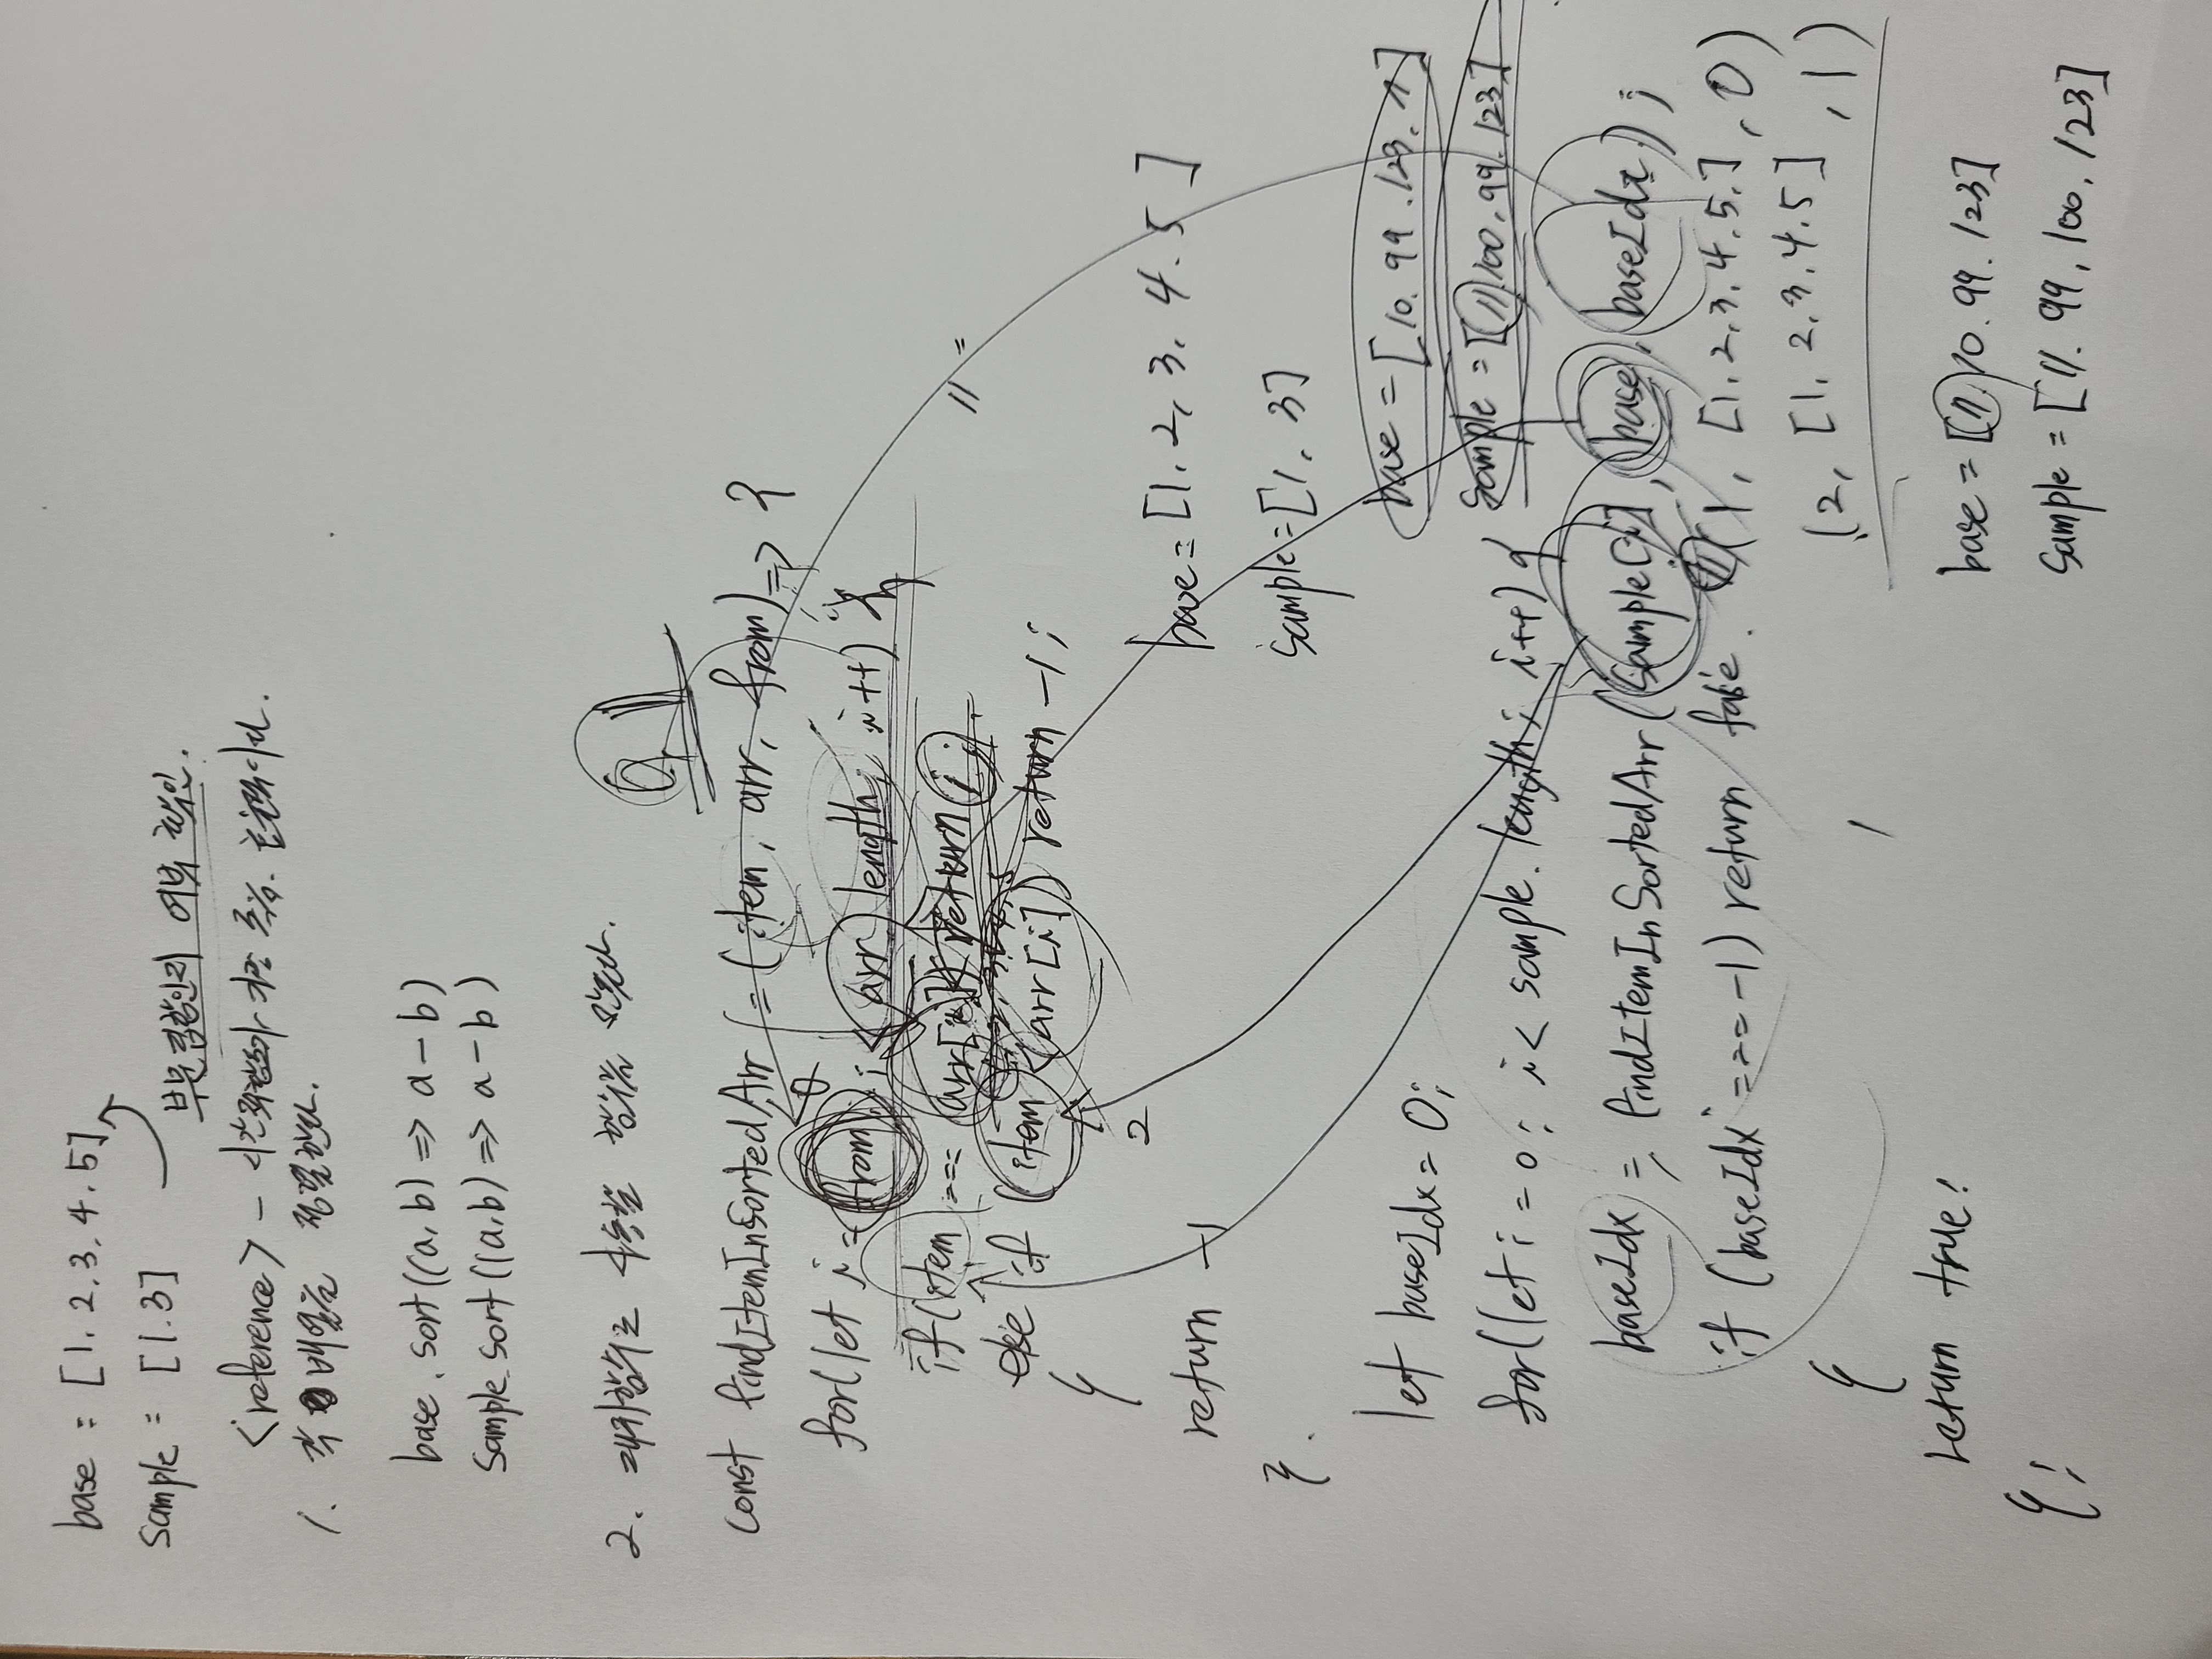 base = [1. 2. 3. 4. 5]
sample = [1.3]
부분집합인지 여부 확인.
<reference> - 시간복잡도가 가장
1. 각 배열을 정렬한다.
base. sort((a, b) => a - b)
sample. sort((a, b) => a - b)
2. 함수를 만든다.
const findItemInSortedArr = (item, arr, from) => {
0
for(let i = from; i < arr. length; i++) {
if(item === arr[i]) return i;
1, 2, 3, 4, 5
else if (item < arr[i]) return -1;
}
2
11 =
return -1
}.
base = [1. 2, 3, 4. 5]
sample = [1, 3]
base = [10. 99. 123. 11]
sample = [11. 100. 99. 123]
let baseIdx = 0;
for(let i = 0; i < sample. length; i++) {
baseIdx = findItemInSortedArr(sample[i], base, baseIdx);
if (baseIdx === -1) return false.
(1, [1. 2. 3. 4. 5.], 0)
(2, [1. 2. 3. 4. 5], 1)
}
return true;
};
base = [11. 10. 99. 123]
sample = [11. 99, 100, 123]